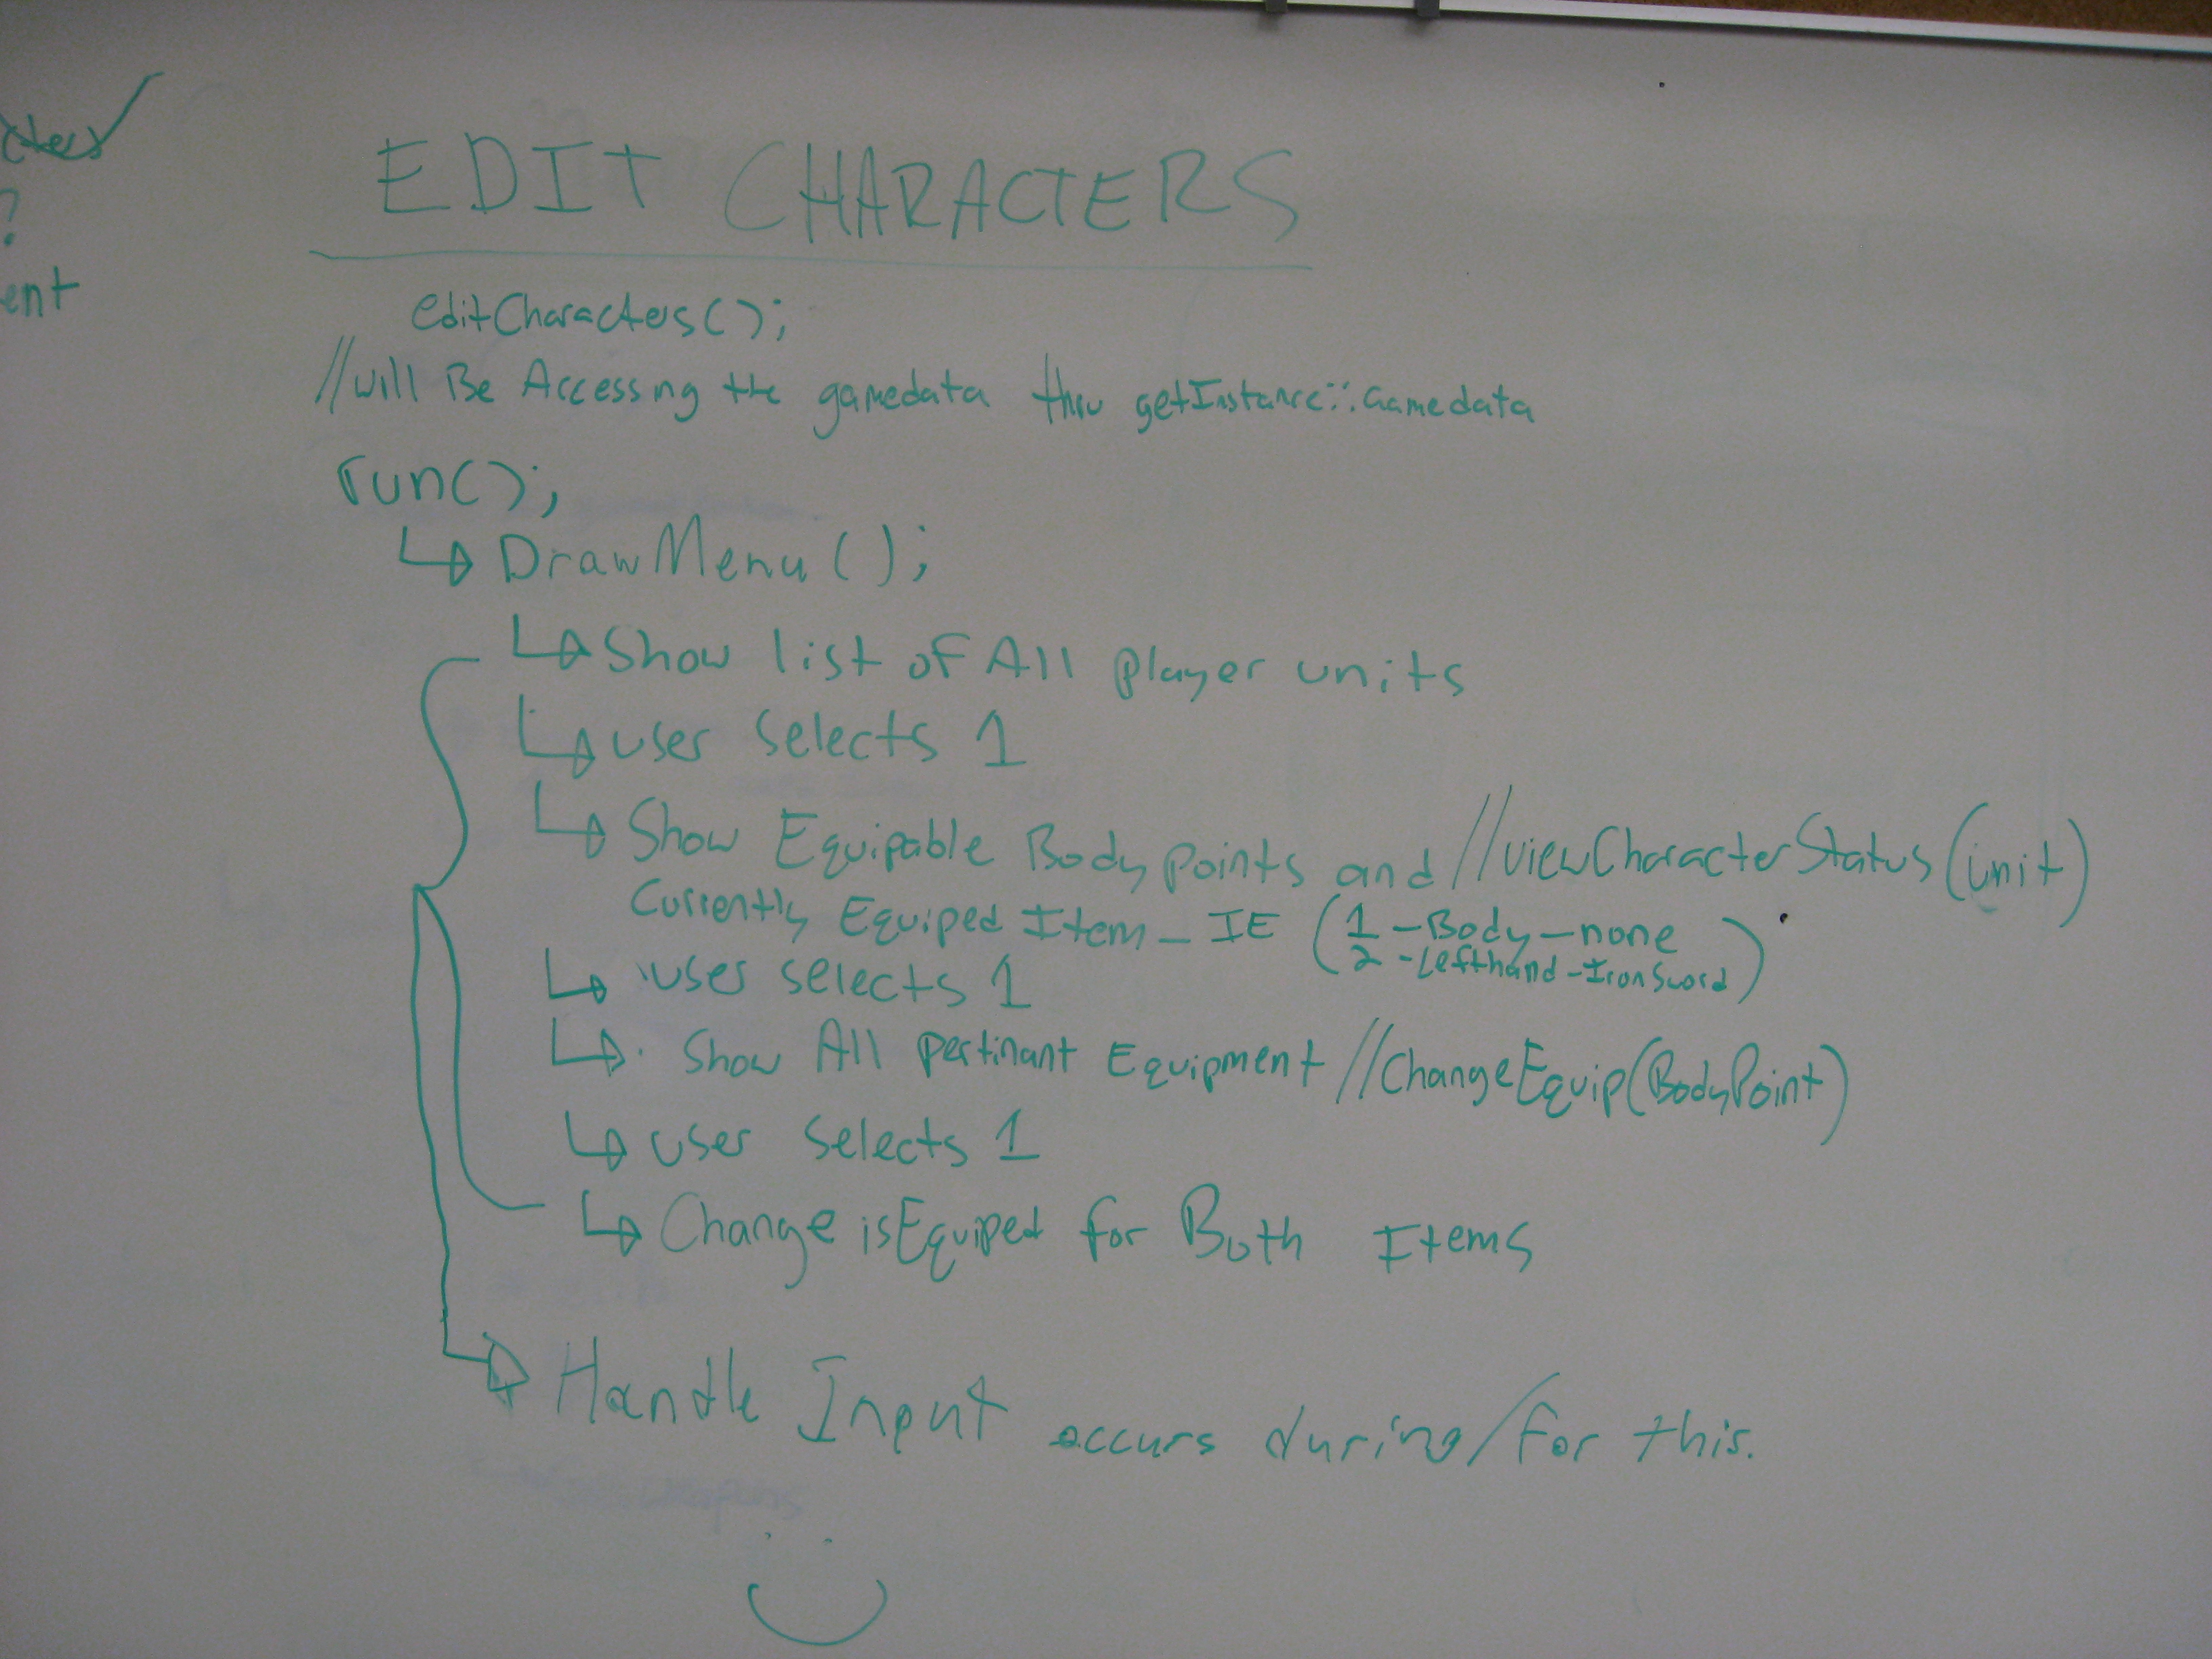 EDIT CHARACTERS
editCharacters();
//will Be Accessing the gamedata thru getInstance::Gamedata
run();
DrawMenu();
Show list of All player units
user selects 1
Show Equipable Body Points and //viewCharacterStatus(unit)
Currently Equiped Item - IE (1 - Body - none
2 - Lefthand - IronSword)
user selects 1
Show All pertinant Equipment //ChangeEquip(BodyPoint)
user selects 1
Change isEquiped for Both Items
Handle Input occurs during/for this.
ent
?